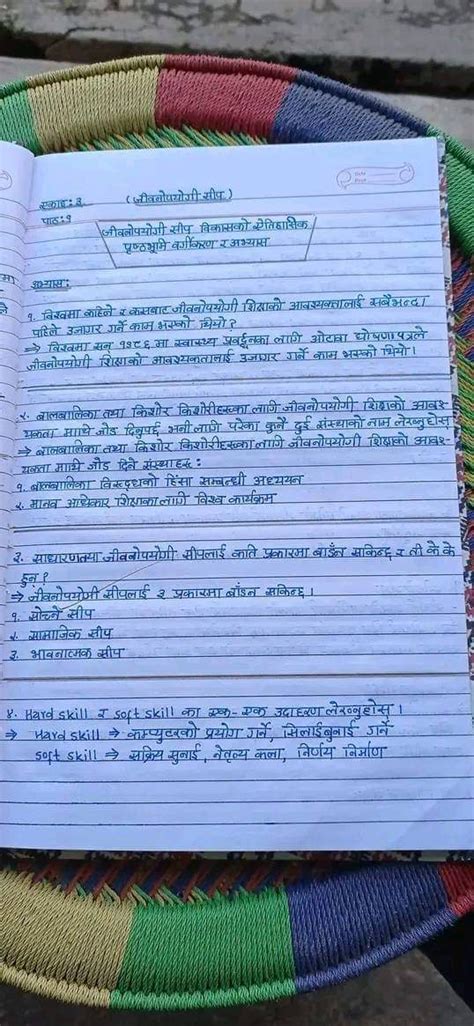 एकाइ: ३ (जीवनोपयोगी सीप)
पाठ: १
जीवनोपयोगी सीप विकासको ऐतिहासिक
पृष्ठभूमि वर्गीकरण र अभ्यास
अभ्यास:
१. विश्वमा कहिले र कसबाट जीवनोपयोगी शिक्षाको आवश्यकतालाई सबैभन्दा
पहिले उजागर गर्ने काम भएको थियो ?
⇒ विश्वमा सन् १९८६ मा स्वास्थ्य प्रवर्द्धनका लागि ओटावा घोषणापत्रले
जीवनोपयोगी शिक्षाको आवश्यकतालाई उजागर गर्ने काम भएको थियो।
२. बालबालिका तथा किशोर किशोरीहरूका लागि जीवनोपयोगी शिक्षाको आवश्
यकता माथि जोड दिनुपर्छ भनी लागि परेका कुनै दुई संस्थाको नाम लेख्नुहोस्
⇒ बालबालिका तथा किशोर किशोरीहरूका लागि जीवनोपयोगी शिक्षाको आवश्
यकता माथि जोड दिने संस्थाहरू :
१. बालबालिका विरुद्धको हिंसा सम्बन्धी अध्ययन
२. मानव अधिकार शिक्षाका लागि विश्व कार्यक्रम
३. साधारणतया जीवनोपयोगी सीपलाई कति प्रकारमा बाँडन सकिन्छ र ती के के
हुन् ?
→ जीवनोपयोगी सीपलाई ३ प्रकारमा बाँडन सकिन्छ।
१. सोच्ने सीप
२. सामाजिक सीप
३. भावनात्मक सीप
४. Hard skill र soft skill का एक-एक उदाहरण लेख्नुहोस्।
→ Hard skill → कम्प्युटरको प्रयोग गर्ने, सिलाईबुनाई गर्ने
soft skill → सक्रिय सुनाई, नेतृत्व कला, निर्णय निर्माण